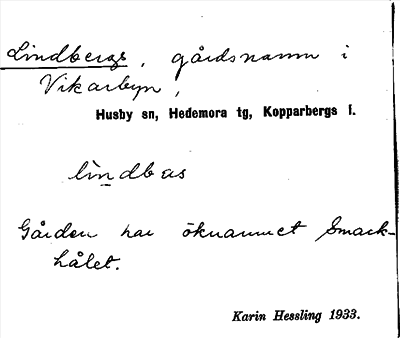 Lindbergs, gårdsnamn i
Vikarbyn,
Husby sn, Hedemora tg, Kopparbergs l.
lindbas
Gården har öknamnet Smack-
hålet.
Karin Hessling 1933.